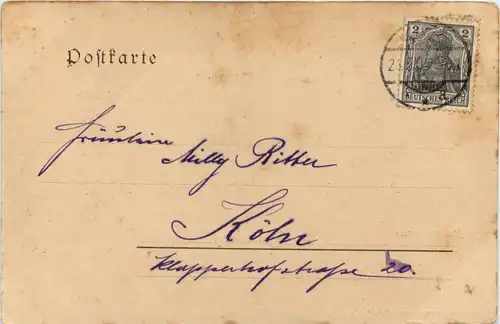 Postkarte
2 2
DEUTSCHES REICH
Fräulein
Milly Ritter
Köln
Klapperhofstraße 20.